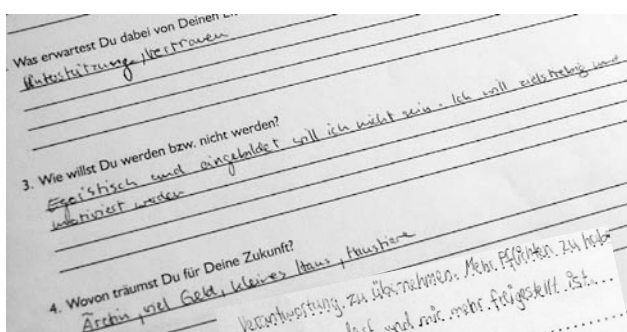 Was erwartest Du dabei von Deinen
Unterstützung, Vertrauen
3. Wie willst Du werden bzw. nicht werden?
Egoistisch und eingebildet will ich nicht sein. Ich will zielstrebig und
motiviert werden
4. Wovon träumst Du für Deine Zukunft?
Ärztin, viel Geld, kleines Haus, Haustiere
Verantwortung zu übernehmen. Mehr Pflichten zu hab
und mir mehr freigestellt ist...